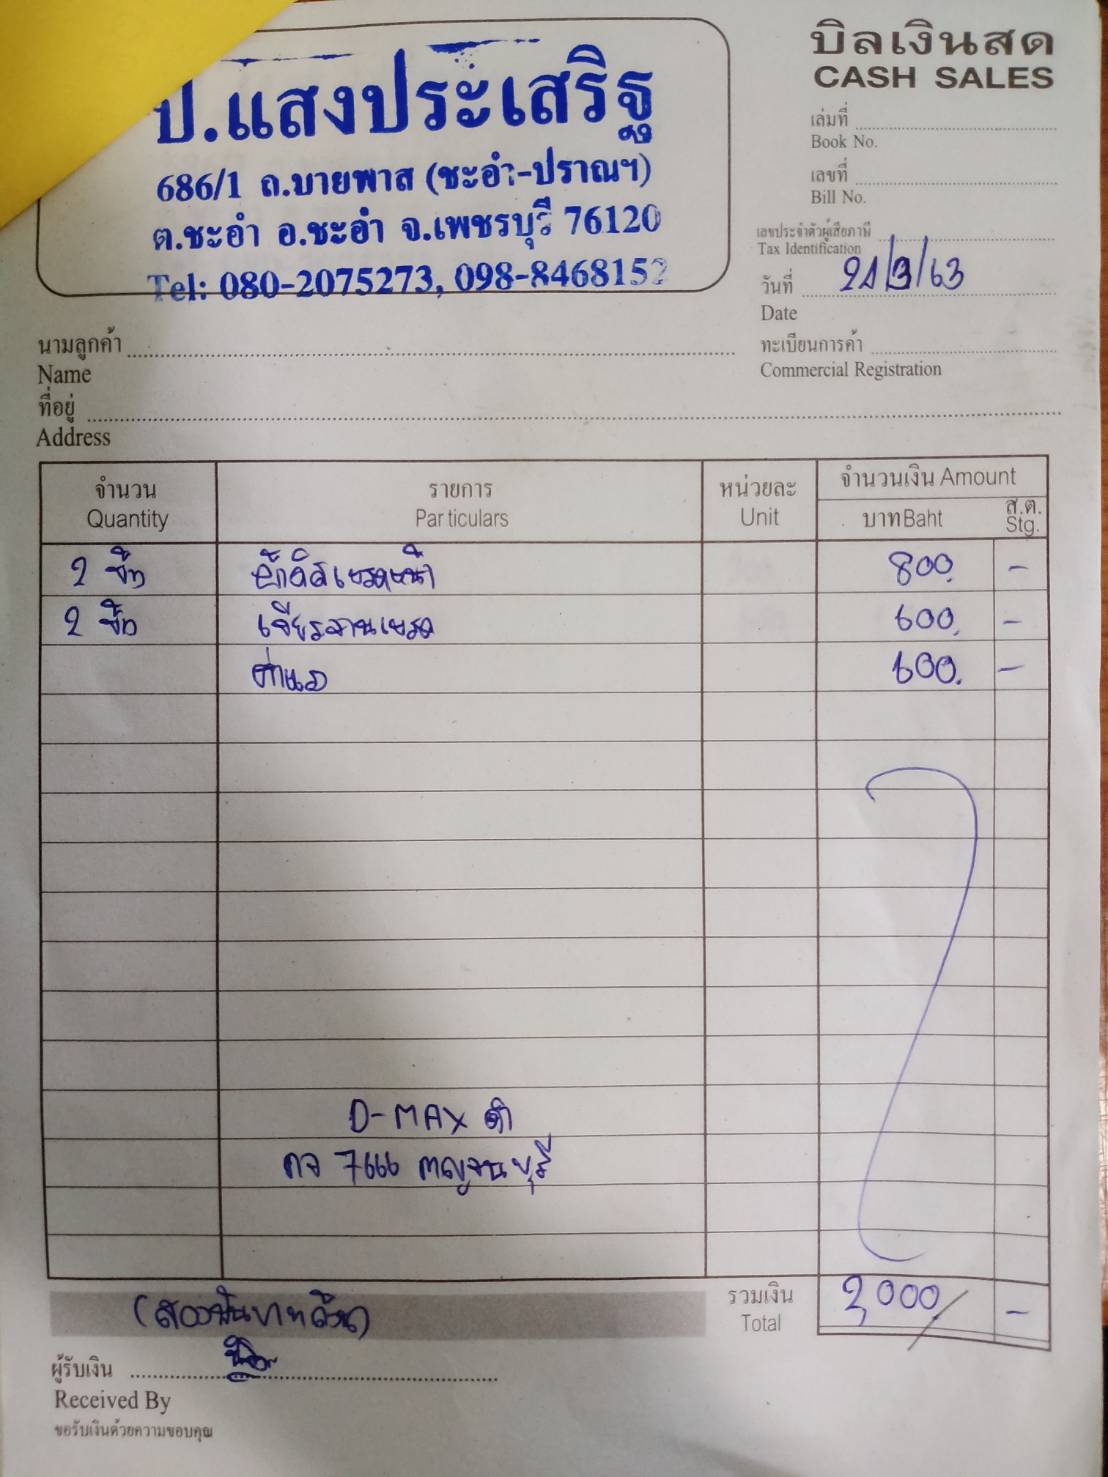 บิลเงินสด
CASH SALES
ป.แสงประเสริฐ
686/1 ถ.บายพาส (ชะอำ-ปราณฯ)
ต.ชะอำ อ.ชะอำ จ.เพชรบุรี 76120
Tel: 080-2075273, 098-8468152
เล่มที่
Book No.
เลขที่
Bill No.
เลขประจำตัวผู้เสียภาษี
Tax Identification
วันที่ 21/3/63
Date
นามลูกค้า
Name
ทะเบียนการค้า
Commercial Registration
ที่อยู่
Address
จำนวน รายการ หน่วยละ จำนวนเงิน Amount
Quantity Particulars Unit บาท Baht ส.ต. Stg.
2 ชิ้น ผ้าดิสเบรคหน้า 800. -
2 ชิ้น เจียรจานเบรค 600. -
ค่าแรง 600. -
D-MAX ดำ
กจ 7666 กาญจนบุรี
(สองพันบาทถ้วน) รวมเงิน 2,000 -
Total
ผู้รับเงิน
Received By
ขอรับเงินด้วยความขอบคุณ